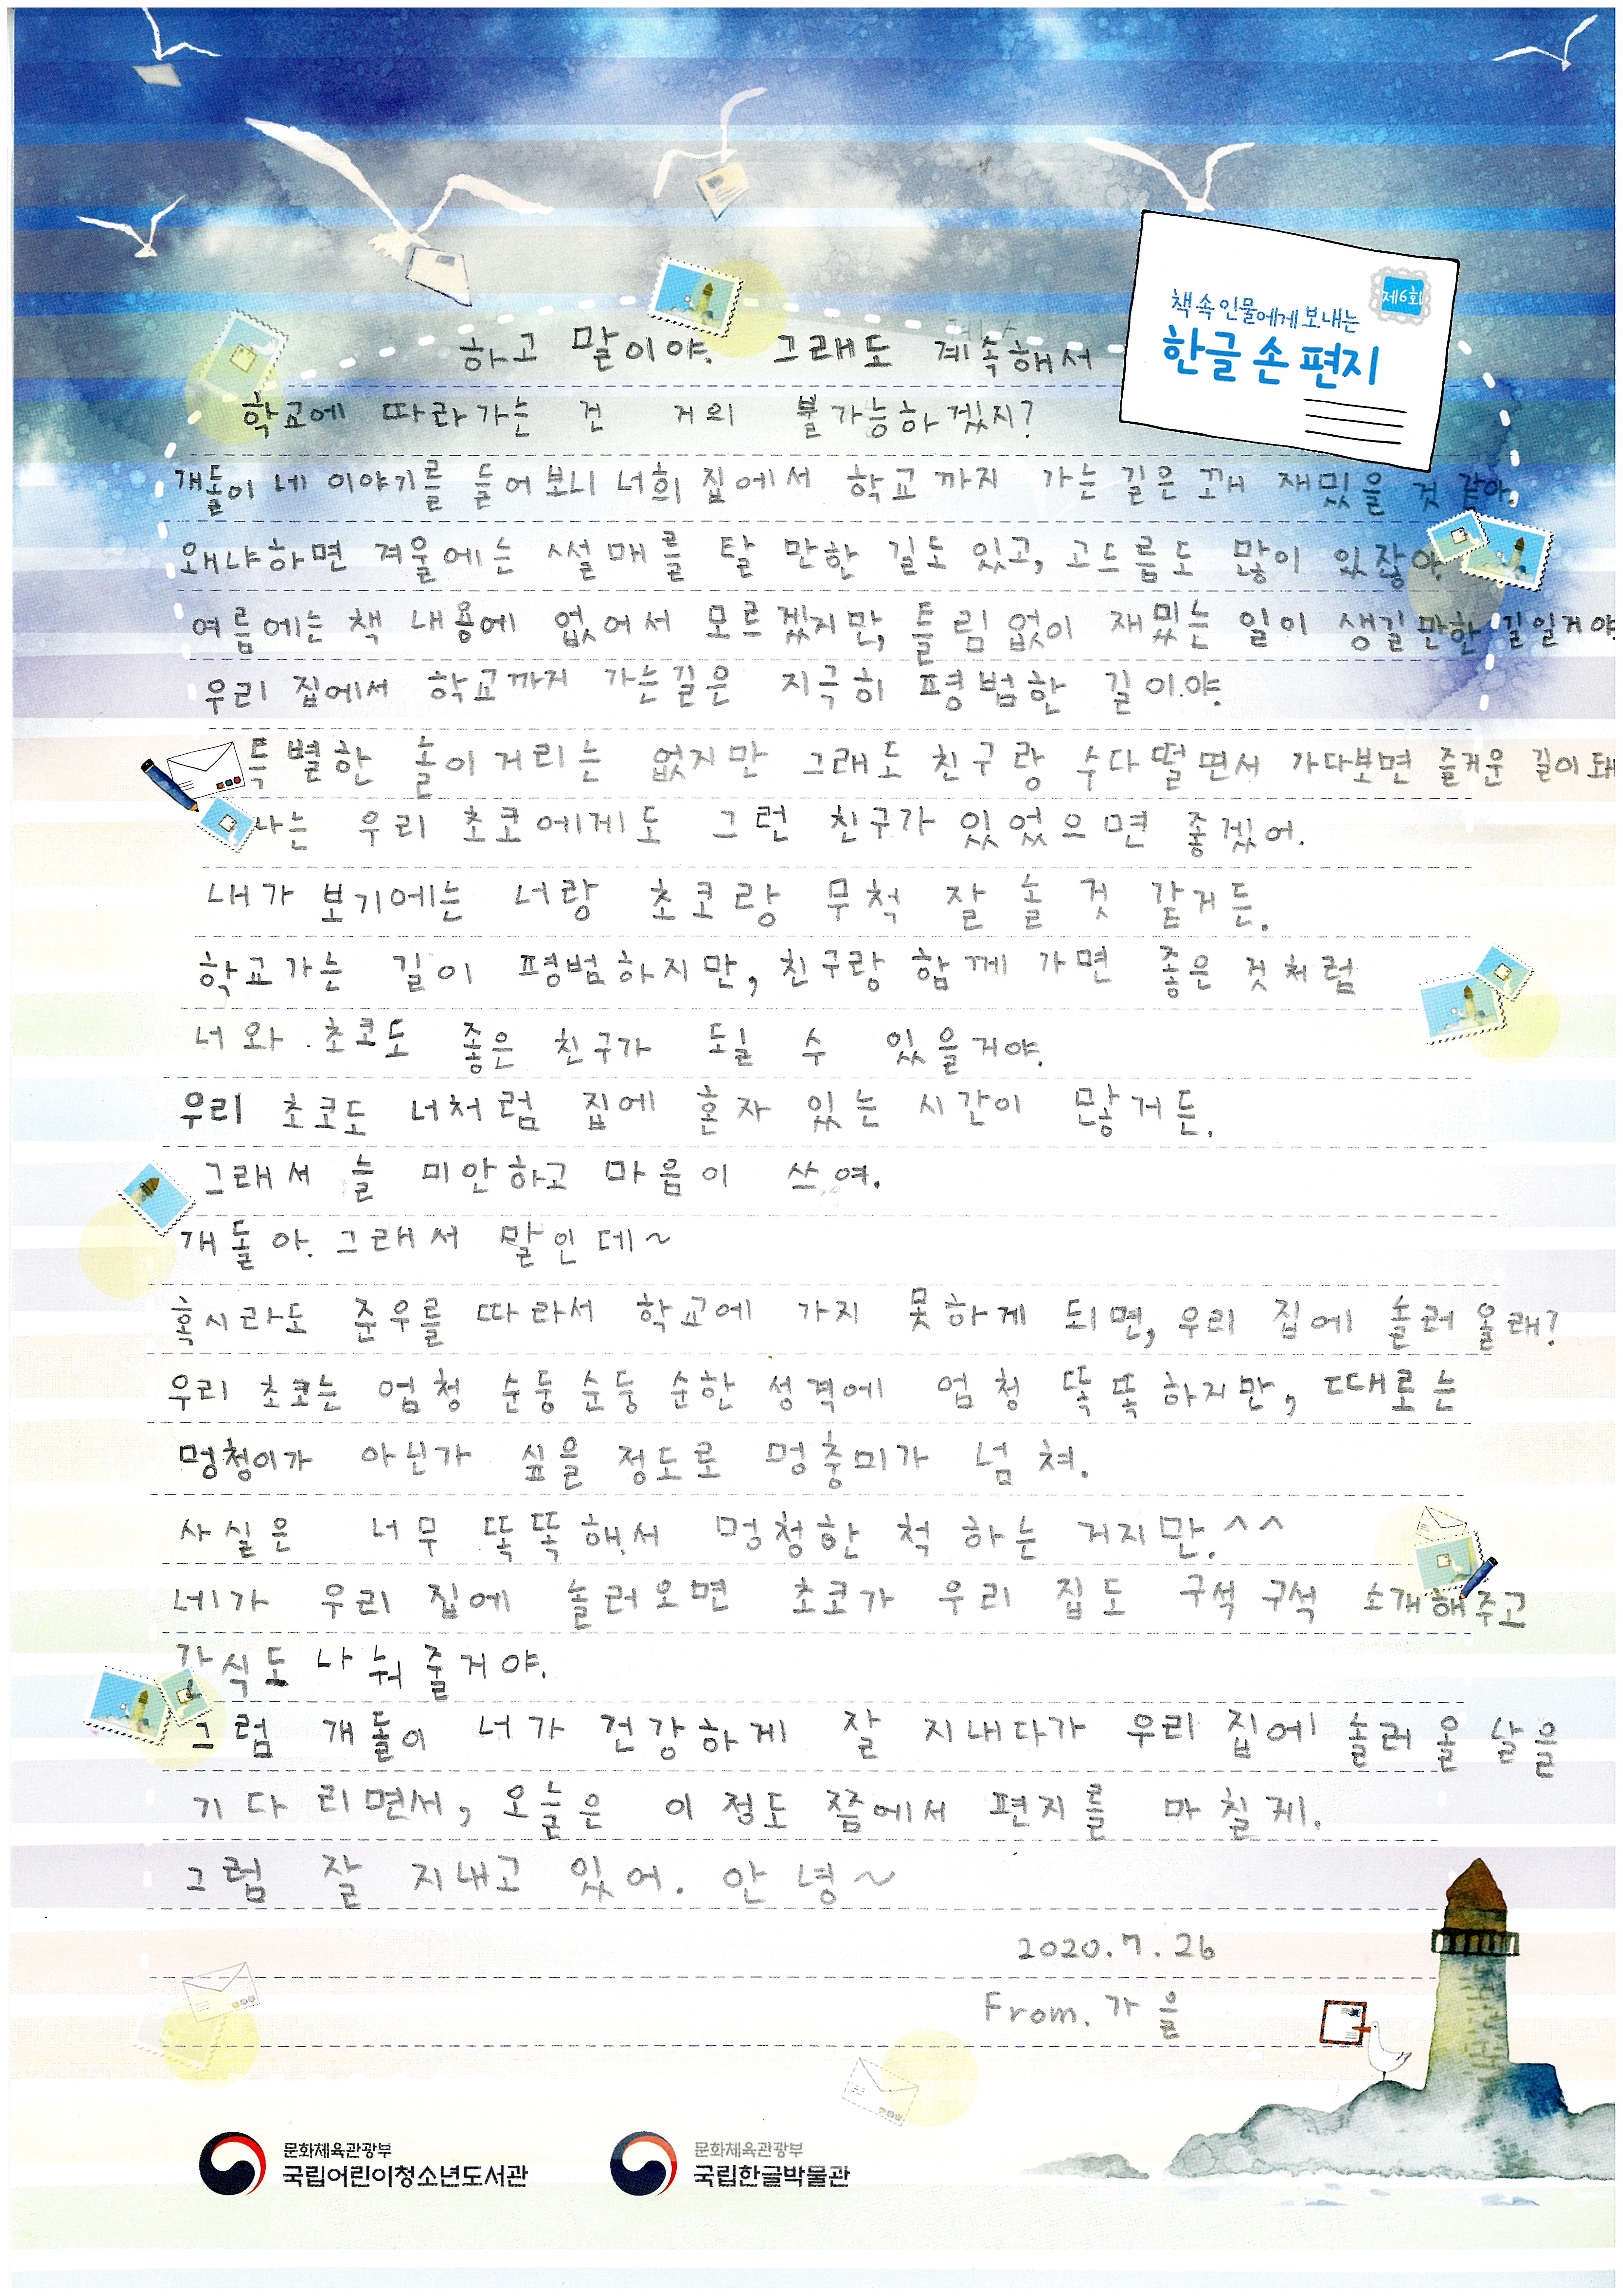 제6회
책 속 인물에게 보내는
한글 손 편지
하고 말이야. 그래도 계속해서
학교에 따라가는 건 거의 불가능하겠지?
개돌이 네 이야기를 들어보니 너희 집에서 학교까지 가는 길은 꽤 재밌을 것 같아.
왜냐하면 겨울에는 썰매를 탈 만한 길도 있고, 고드름도 많이 있잖아.
여름에는 책 내용에 없어서 모르겠지만, 틀림없이 재밌는 일이 생길만한 길일거야
우리 집에서 학교까지 가는길은 지극히 평범한 길이야.
특별한 놀이거리는 없지만 그래도 친구랑 수다떨면서 가다보면 즐거운 길이 돼
나는 우리 초코에게도 그런 친구가 있었으면 좋겠어.
내가 보기에는 너랑 초코랑 무척 잘 놀 것 같거든.
학교가는 길이 평범하지만, 친구랑 함께 가면 좋은 것처럼
너와 초코도 좋은 친구가 도일 수 있을거야.
우리 초코도 너처럼 집에 혼자 있는 시간이 많거든.
그래서 늘 미안하고 마음이 쓰여.
개돌아. 그래서 말인데~
혹시라도 준우를 따라서 학교에 가지 못하게 되면, 우리 집에 놀러올래?
우리 초코는 엄청 순둥순둥 순한 성격에 엄청 똑똑하지만, 때로는
멍청이가 아닌가 싶을 정도로 멍충미가 넘쳐.
사실은 너무 똑똑해서 멍청한 척 하는 거지만.^^
네가 우리 집에 놀러오면 초코가 우리 집도 구석구석 소개해주고
간식도 나눠줄거야.
그럼 개돌이 너가 건강하게 잘 지내다가 우리 집에 놀러 올 날을
기다리면서, 오늘은 이 정도 쯤에서 편지를 마칠게.
그럼 잘 지내고 있어. 안녕~
2020.7.26
From. 가을
문화체육관광부
국립어린이청소년도서관
문화체육관광부
국립한글박물관